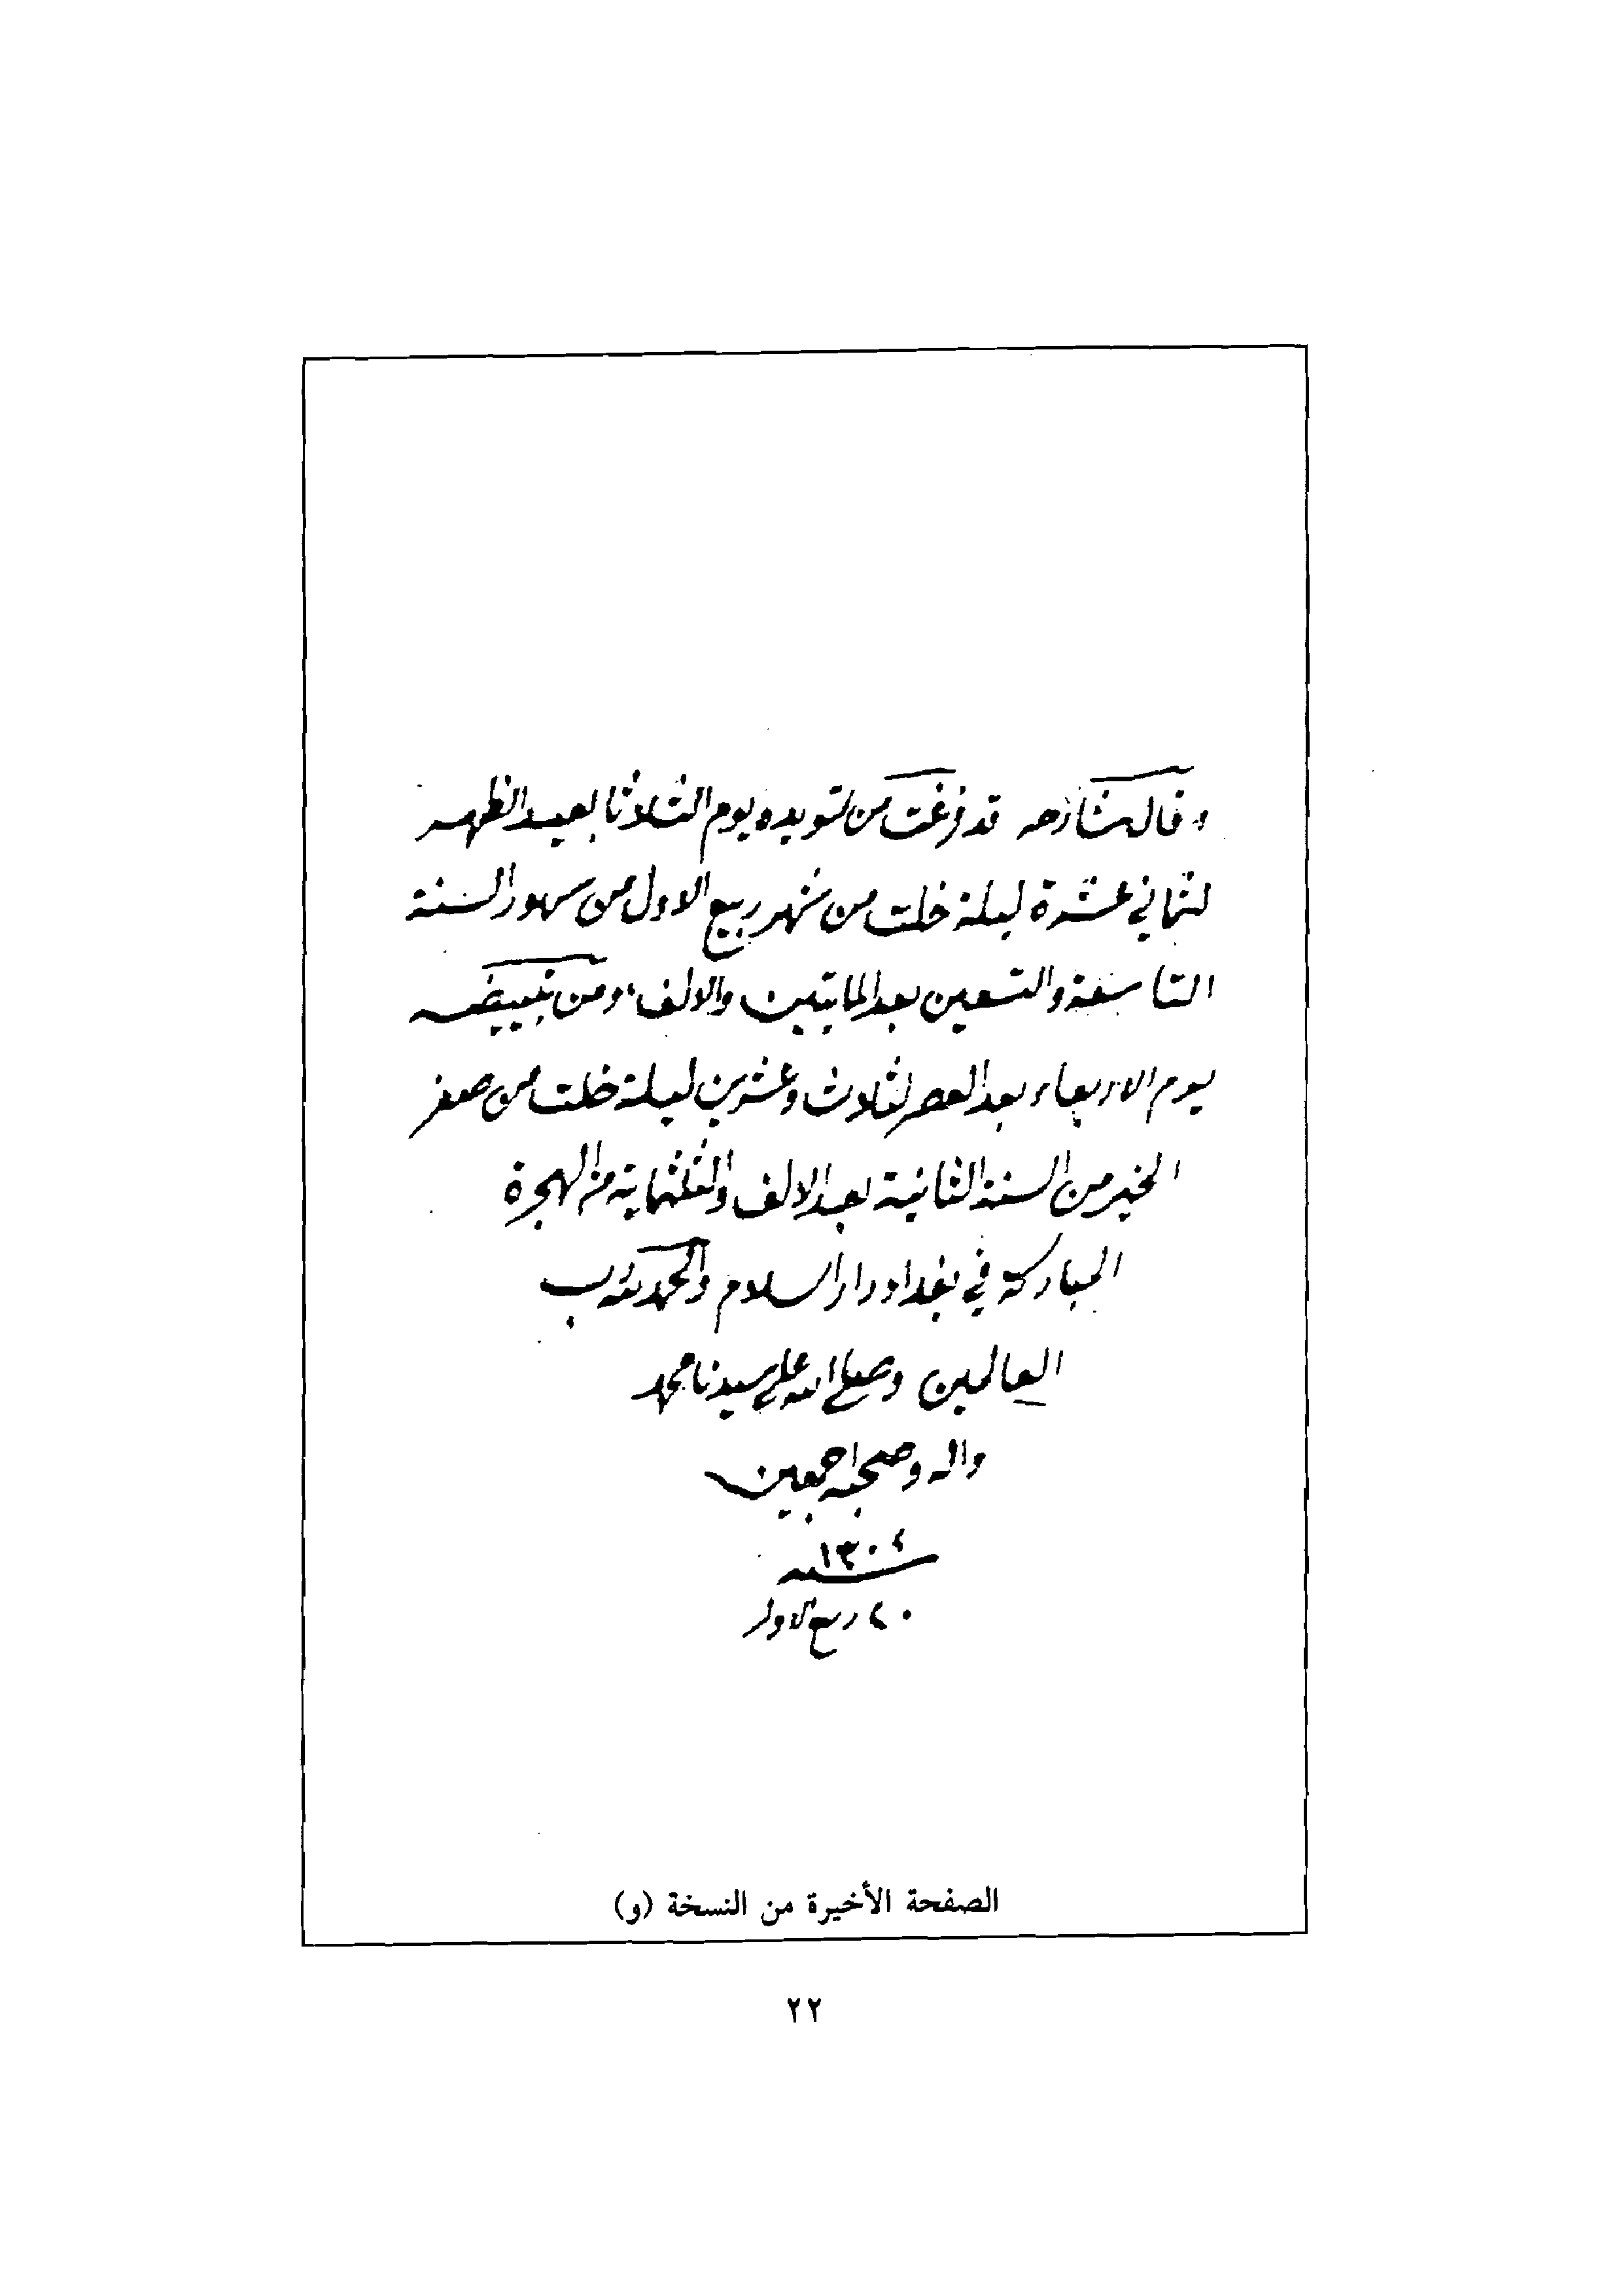 وقال شارحه قد فرغت من تسويده يوم الثلاثا بعيد الظهر
لثماني عشرة ليلة خلت من شهر ربيع الاول من شهور السنة
التاسعة والتسعين بعد المايتين والالف، ومن تبييضه
يوم الاربعاء بعد العصر لثلاث وعشرين ليلة خلت من صفر
الخير من السنة الثانية بعد الالف والثلثماية من الهجرة
المباركة في بغداد دار السلام والحمد لله رب
العالمين وصلى الله على سيدنا محمد
واله وصحبه اجمعين
سنه ١٣٠٤
٢٠ ربيع الاول
الصفحة الأخيرة من النسخة (و)
٢٢